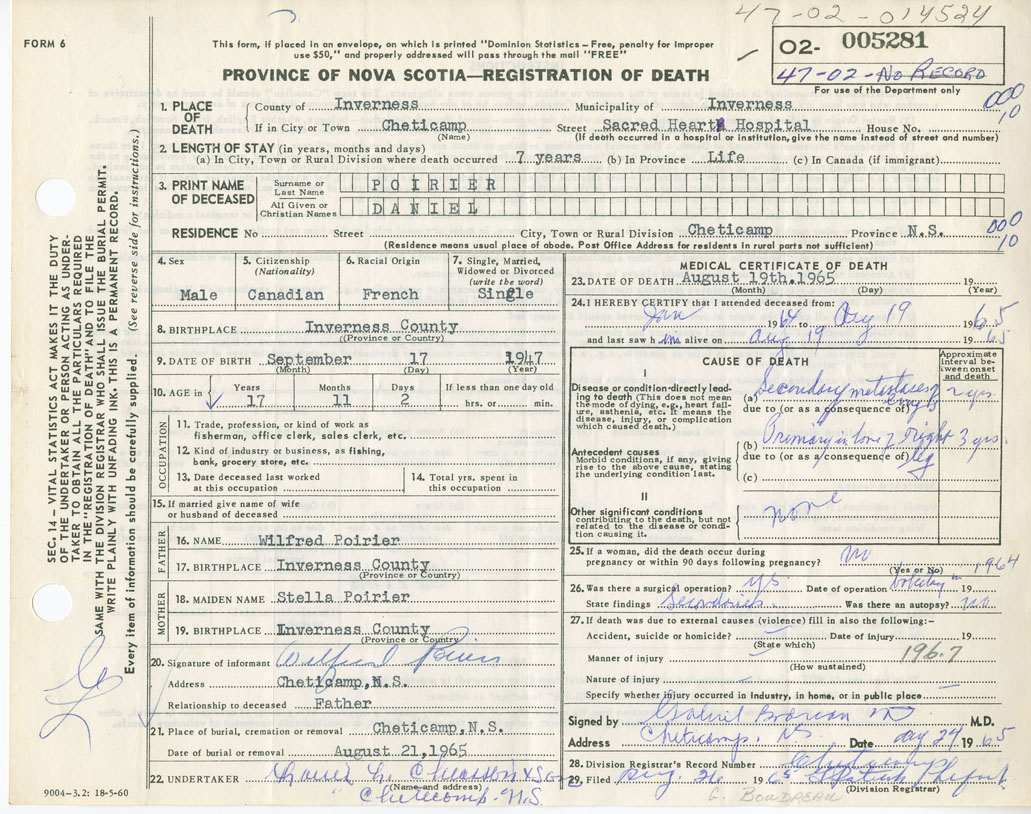 47-02-014524
FORM 6
This form, if placed in an envelope, on which is printed "Dominion Statistics – Free, penalty for improper
use $50," and properly addressed will pass through the mail "FREE"
O2- 005281
47-02-No RECORD
PROVINCE OF NOVA SCOTIA—REGISTRATION OF DEATH
For use of the Department only
SEC. 14 – VITAL STATISTICS ACT MAKES IT THE DUTY
OF THE UNDERTAKER OR PERSON ACTING AS UNDER-
TAKER TO OBTAIN ALL THE PARTICULARS REQUIRED
IN THE "REGISTRATION OF DEATH" AND TO FILE THE
SAME WITH THE DIVISION REGISTRAR WHO SHALL ISSUE THE BURIAL PERMIT.
WRITE PLAINLY WITH UNFADING INK - THIS IS A PERMANENT RECORD.
Every item of information should be carefully supplied. (See reverse side for instructions.)
1. PLACE OF DEATH
County of Inverness Municipality of Inverness
000
10
If in City or Town Cheticamp Street Sacred Heart Hospital House No.
(Name) (If death occurred in a hospital or institution, give the name instead of street and number)
2. LENGTH OF STAY (in years, months and days)
(a) In City, Town or Rural Division where death occurred 7 years (b) In Province Life (c) In Canada (if immigrant)
3. PRINT NAME OF DECEASED
Surname or Last Name POIRIER
All Given or Christian Names DANIEL
RESIDENCE No Street City, Town or Rural Division Cheticamp Province N.S.
000
10
(Residence means usual place of abode. Post Office Address for residents in rural parts not sufficient)
4. Sex
Male
5. Citizenship
(Nationality)
Canadian
6. Racial Origin
French
7. Single, Married,
Widowed or Divorced
(write the word)
Single
8. BIRTHPLACE Inverness County
(Province or Country)
9. DATE OF BIRTH September 17 1947
(Month) (Day) (Year)
10. AGE in Years Months Days If less than one day old
17 11 2 hrs. or min.
OCCUPATION
11. Trade, profession, or kind of work as
fisherman, office clerk, sales clerk, etc.
12. Kind of industry or business, as fishing,
bank, grocery store, etc.
13. Date deceased last worked
at this occupation
14. Total yrs. spent in
this occupation
15. If married give name of wife
or husband of deceased
FATHER
16. NAME Wilfred Poirier
17. BIRTHPLACE Inverness County
(Province or Country)
MOTHER
18. MAIDEN NAME Stella Poirier
19. BIRTHPLACE Inverness County
(Province or Country)
20. Signature of informant Wilfred Poirier
Address Cheticamp, N.S.
Relationship to deceased Father
21. Place of burial, cremation or removal Cheticamp, N.S.
Date of burial or removal August 21, 1965
22. UNDERTAKER
(Name and address)
Cheticamp. N.S.
9004-3.2: 18-5-60
MEDICAL CERTIFICATE OF DEATH
23. DATE OF DEATH August 19th. 1965 19
(Month) (Day) (Year)
24. I HEREBY CERTIFY that I attended deceased from:
Jan 1964 to Aug 19 1965
and last saw him alive on Aug 19 1965
CAUSE OF DEATH
Approximate interval between onset and death
I
Disease or condition directly lead-
ing to death (This does not mean
the mode of dying, e.g., heart fail-
ure, asthenia, etc. It means the
disease, injury, or complication
which caused death.)
(a) Secondary metastases 2 yrs.
due to (or as a consequence of)
(b) Primary in bone of right leg 3 yrs.
due to (or as a consequence of)
(c)
Antecedent causes
Morbid conditions, if any, giving
rise to the above cause, stating
the underlying condition last.
II
Other significant conditions
contributing to the death, but not
related to the disease or condi-
tion causing it.
none
25. If a woman, did the death occur during
pregnancy or within 90 days following pregnancy? no
(Yes or No)
26. Was there a surgical operation? yes Date of operation 1964
State findings Secondaries Was there an autopsy? no
27. If death was due to external causes (violence) fill in also the following:–
Accident, suicide or homicide? Date of injury 19
(State which)
Manner of injury 196.7
(How sustained)
Nature of injury
Specify whether injury occurred in industry, in home, or in public place
Signed by M.D.
Address Cheticamp, NS Date Aug 24 1965
28. Division Registrar's Record Number
29. Filed Aug. 26 1965
(Division Registrar)
G. BOUDREAU